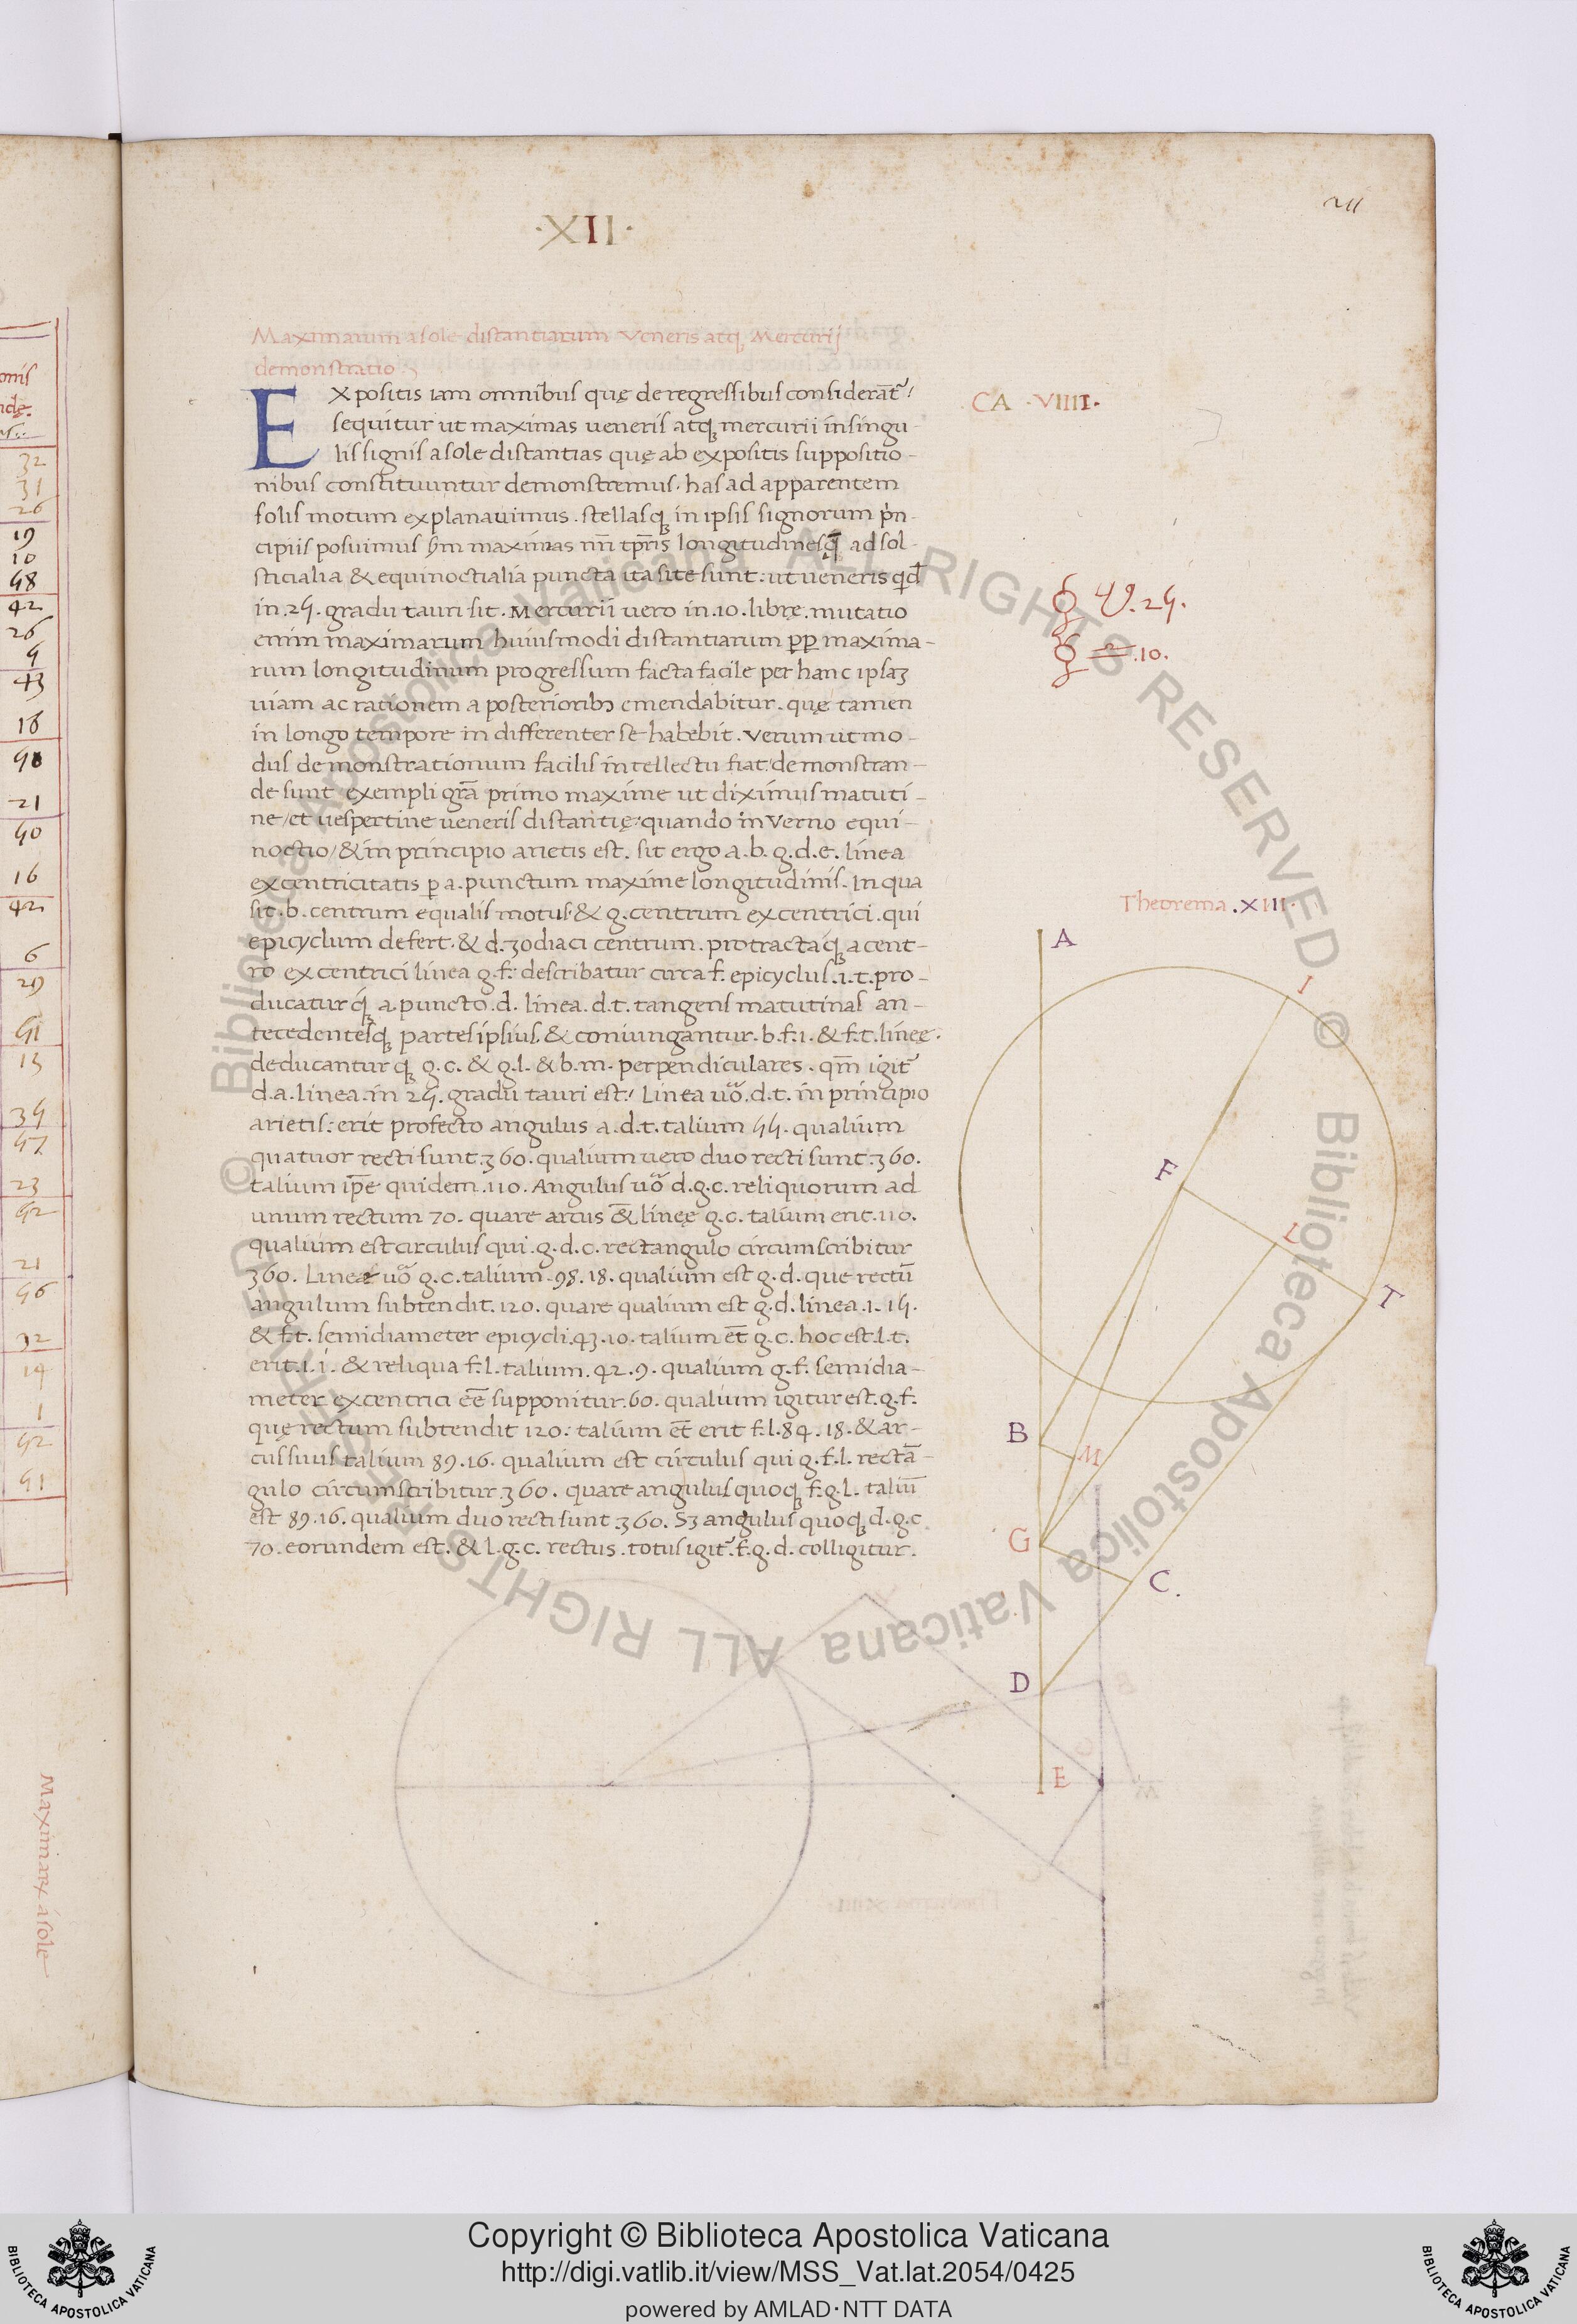 ·XII·
211
Maximarum a sole distantiarum Veneris atq Mercurij
demonstratio
EXpositis iam omnibus quę de regressibus considerat̃
sequitur ut maximas ueneris atq mercurii in singu-
lis signis a sole distantias quę ab expositis suppositio-
nibus constituuntur demonstremus. has ad apparentem
solis motum explanauimus. stellasq in ipsis signorum prin-
cipiis posuimus maximas longitudinesq ad sol-
sticialia & equinoctialia puncta ita site sunt: ut ueneris qd
in .25. gradu tauri sit. Mercurii uero in .10. librę. mutatio
enim maximarum huiusmodi distantiarum pp maxima-
rum longitudinum progressum facta facile per hanc ipsaʒ
uiam ac rationem a posteriorib emendabitur. quę tamen
in longo tempore in differenter se habebit. Verum ut mo-
dus demonstrationum facilis intellectu fiat: demonstran-
de sunt exempli grã primo maxime ut diximus matuti-
ne/et uespertine ueneris distantię: quando in verno equi-
noctio/& in principio arietis est. sit ergo a.b.g.d.e. linea
excentricitatis p a. punctum maxime longitudinis. In qua
sit .b. centrum equalis motus. & g. centrum excentrici. qui
epicyclum defert. & d. zodiaci centrum. protractaq a cent-
ro excentrici linea g.f. describatur circa f. epicyclus .i.t. pro-
ducaturq a puncto .d. linea .d.t. tangens matutinas an-
tecedentesq partes ipsius. & coniungantur .b.f.i. & f.t. lineę.
deducanturq g.c. & g.l. & b.m. perpendiculares. qm̃ igit̃
d.a. linea .in 25. gradu tauri est: Linea uõ .d.t. in principio
arietis: erit profecto angulus a.d.t. talium 55. qualium
quatuor recti sunt .360. qualium uero duo recti sunt .360.
talium ip̃e quidem .110. Angulus uõ d.g.c. reliquorum ad
unum rectum 70. quare arcus & lineę g.c. talium erit .110.
qualium est circulus qui .g.d.c. rectangulo circumscribitur
360. Linea uõ g.c. talium .98.18. qualium est g.d. que rectũ
angulum subtendit .120. quare qualium est g.d. linea .1.15.
& f.t. semidiameter epicycli .43.10. talium et̃ g.c. hoc est .l.t.
erit .1.1. & reliqua f.l. talium .42.9. qualium g.f. semidia-
meter excentrici eẽ supponitur .60. qualium igitur est .g.f.
quę rectum subtendit 120: talium et̃ erit f.l. 84.18. & ar-
cus suus talium 89.16. qualium est circulus qui g.f.l. rectã-
gulo circumscribitur 360. quare angulus quoq f.g.l. taliũ
est 89.16. qualium duo recti sunt .360. Sʒ angulus quoq d.g.c
70. eorundem est. & l.g.c. rectus. totus igit̃ .f.g.d. colligitur.
CA ·VIIII·
♀ ♉.25.
☿ ♎.10.
Theorema .XIII.
A
I
F
L
T
B
M
G
C.
D
E
32
31
26
19
10
58
42
26
5
43
18
21
50
16
42
6
29
51
13
35
57
23
52
21
56
32
14
1
52
51
a sole
© Biblioteca Apostolica Vaticana ALL RIGHTS RESERVED © Biblioteca Apostolica Vaticana ALL RIGHTS RESERVED
Copyright © Biblioteca Apostolica Vaticana
http://digi.vatlib.it/view/MSS_Vat.lat.2054/0425
powered by AMLAD·NTT DATA
BIBLIOTECA APOSTOLICA VATICANA
BIBLIOTECA APOSTOLICA VATICANA